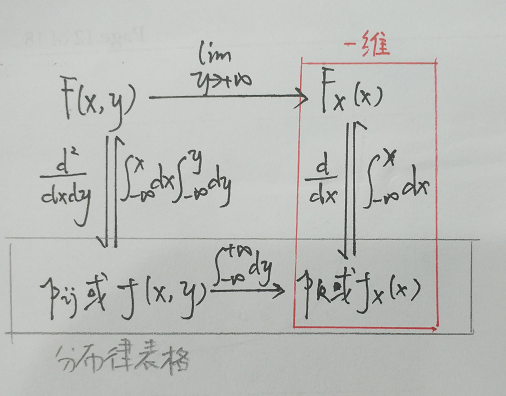 一维
F(x,y) lim y→+∞ F_X(x)
d²/dxdy ∫_{-∞}^{x}dx∫_{-∞}^{y}dy d/dx ∫_{-∞}^{x}dx
p_{ij}或f(x,y) ∫_{-∞}^{+∞}dy p_k或f_X(x)
分布律表格